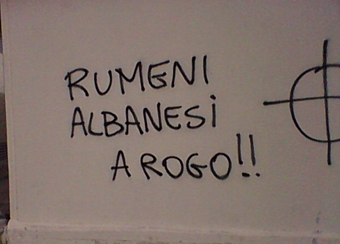 RUMENI
ALBANESI
A ROGO!!